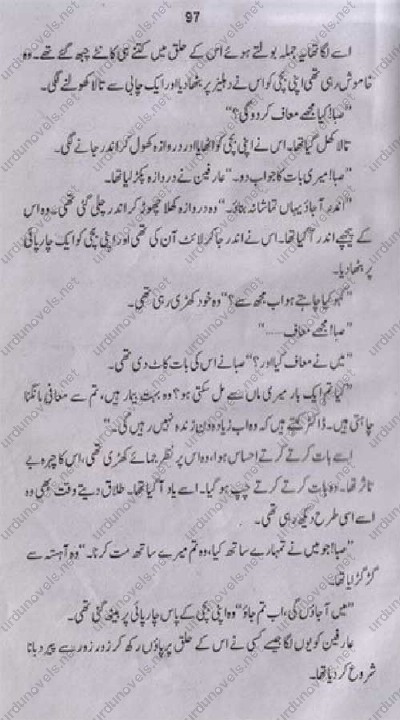 97
اسے لگا تھا یہ جملہ بولتے ہوئے اس کے حلق میں کتنے ہی کانٹے چبھ گئے تھے۔ وہ
خاموش رہی تھی اپنی بچی کو اس نے دہلیز پر بٹھا دیا اور ایک چابی سے تالا کھولنے لگی۔
”صبا! کیا مجھے معاف کر دو گی؟“
تالا کھل گیا تھا۔ اس نے اپنی بچی کو اٹھایا اور دروازہ کھول کر اندر جانے لگی۔
”صبا! میری بات کا جواب دو۔“ عارفین نے دروازہ پکڑ لیا تھا۔
”اندر آ جاؤ یہاں تماشا نہ بناؤ۔“ وہ دروازہ کھلا چھوڑ کر اندر چلی گئی تھی۔ وہ اس
کے پیچھے اندر آ گیا تھا۔ اس نے اندر جا کر لائٹ آن کی تھی اور اپنی بچی کو ایک چارپائی
پر بٹھا دیا۔
”کہو کیا چاہتے ہو اب مجھ سے؟“ وہ خود کھڑی رہی تھی۔
”صبا! مجھے معاف......“
”میں نے معاف کیا اور؟“ صبا نے اس کی بات کاٹ دی تھی۔
”کیا تم ایک بار میری ماں سے مل سکتی ہو؟ وہ بہت بیمار ہیں، تم سے معافی مانگنا
چاہتی ہیں۔ ڈاکٹر کہتے ہیں کہ وہ اب زیادہ دن زندہ نہیں رہیں گی۔“
اسے بات کرتے کرتے احساس ہوا، وہ اس پر نظر جمائے کھڑی تھی، اس کا چہرہ بے
تاثر تھا۔ وہ بات کرتے کرتے چپ ہو گیا۔ اسے یاد آ گیا تھا۔ طلاق دیتے وقت بھی وہ
اسے اسی طرح دیکھ رہی تھی۔
”صبا! جو میں نے تمہارے ساتھ کیا، وہ تم میرے ساتھ مت کرنا۔“ وہ آہستہ سے
گڑگڑایا تھا۔
”میں آ جاؤں گی، اب تم جاؤ“ وہ اپنی بچی کے پاس چارپائی پر بیٹھ گئی تھی۔
عارفین کو یوں لگا جیسے کسی نے اس کے حلق پر پاؤں رکھ کر زور زور سے پیر دبانا
شروع کر دیا تھا۔
urdunovels.net